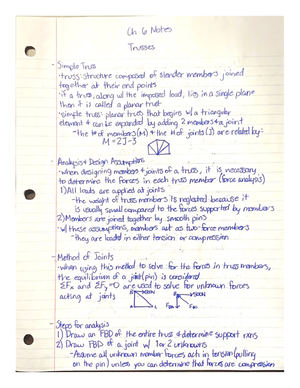 Ch 6 Notes
Trusses
- Simple Truss
·truss: structure composed of slender members joined
together at their end points
·if a truss, along w/ the imposed load, lies in a single plane
then it is called a planar truss
·simple truss: planar truss that begins w/ a triangular
element & can be expanded by adding 2 members & a joint
- the # of members (M) & the # of joints (J) are related by:
M = 2J-3
- Analysis & Design Assumptions
·when designing members & joints of a truss, it is necessary
to determine the forces in each truss member (force analysis)
1) All loads are applied at joints
- the weight of truss members is neglected because it
is usually small compared to the forces supported by members
2) Members are joined together by smooth pins
·w/ these assumptions, members act as two-force members
- they are loaded in either tension or compression
- Method of Joints
·when using this method to solve for the forces in truss members,
the equilibrium of a joint (pin) is considered
ΣFx & ΣFy = 0 are used to solve for unknown forces
acting at joints
- Steps for analysis
1) Draw an FBD of the entire truss & determine support rxns
2) Draw FBD of a joint w/ 1 or 2 unknowns
- Assume all unknown member forces act in tension (pulling
on the pin) unless you can determine that forces are compression